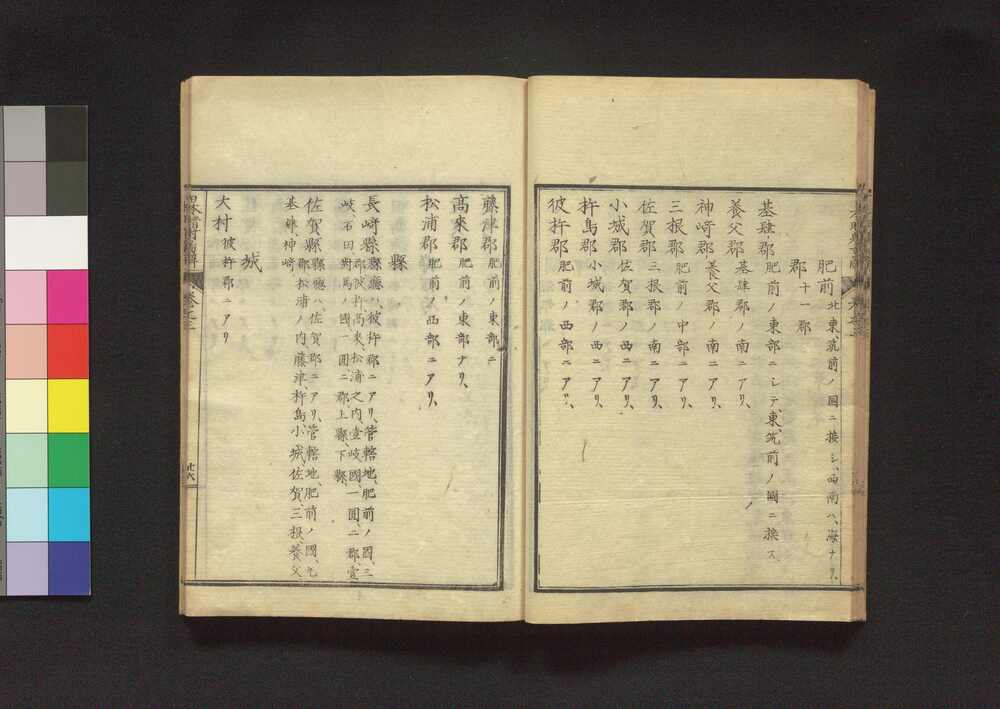 肥前 北東筑前ノ國ニ接シ、西南ハ、海ナリ、
郡十一郡
基肄郡 肥前ノ東部ニシテ東、筑前ノ國ニ接ス
養父郡 基肄郡ノ南ニアリ、
神﨑郡 養父郡ノ南ニアリ、
三根郡 肥前ノ中部ニアリ、
佐賀郡 三根郡ノ南ニアリ、
小城郡 佐賀郡ノ西ニアリ、
杵島郡 小城郡ノ西ニアリ、
彼杵郡 肥前ノ西部ニアリ、
藤津郡 肥前ノ東部ニ
高來郡 肥前ノ東部ナリ、
松浦郡 肥前ノ西部ニアリ、
縣
長﨑縣 縣廳ハ、彼杵郡ニアリ、管轄地、肥前ノ國、三
郡彼杵高來、松浦之内、壹岐國、一圓、二郡、壹
岐、石田、對馬ノ國、一圓二郡、上縣、下縣、
佐賀縣 縣廳ハ、佐賀郡ニアリ、管轄地、肥前ノ國、九
郡、松浦ノ内、藤津、杵島、小城、佐賀、三根、養父
基肄、神﨑
城
大村 彼杵郡ニアリ
卷之三
廿八